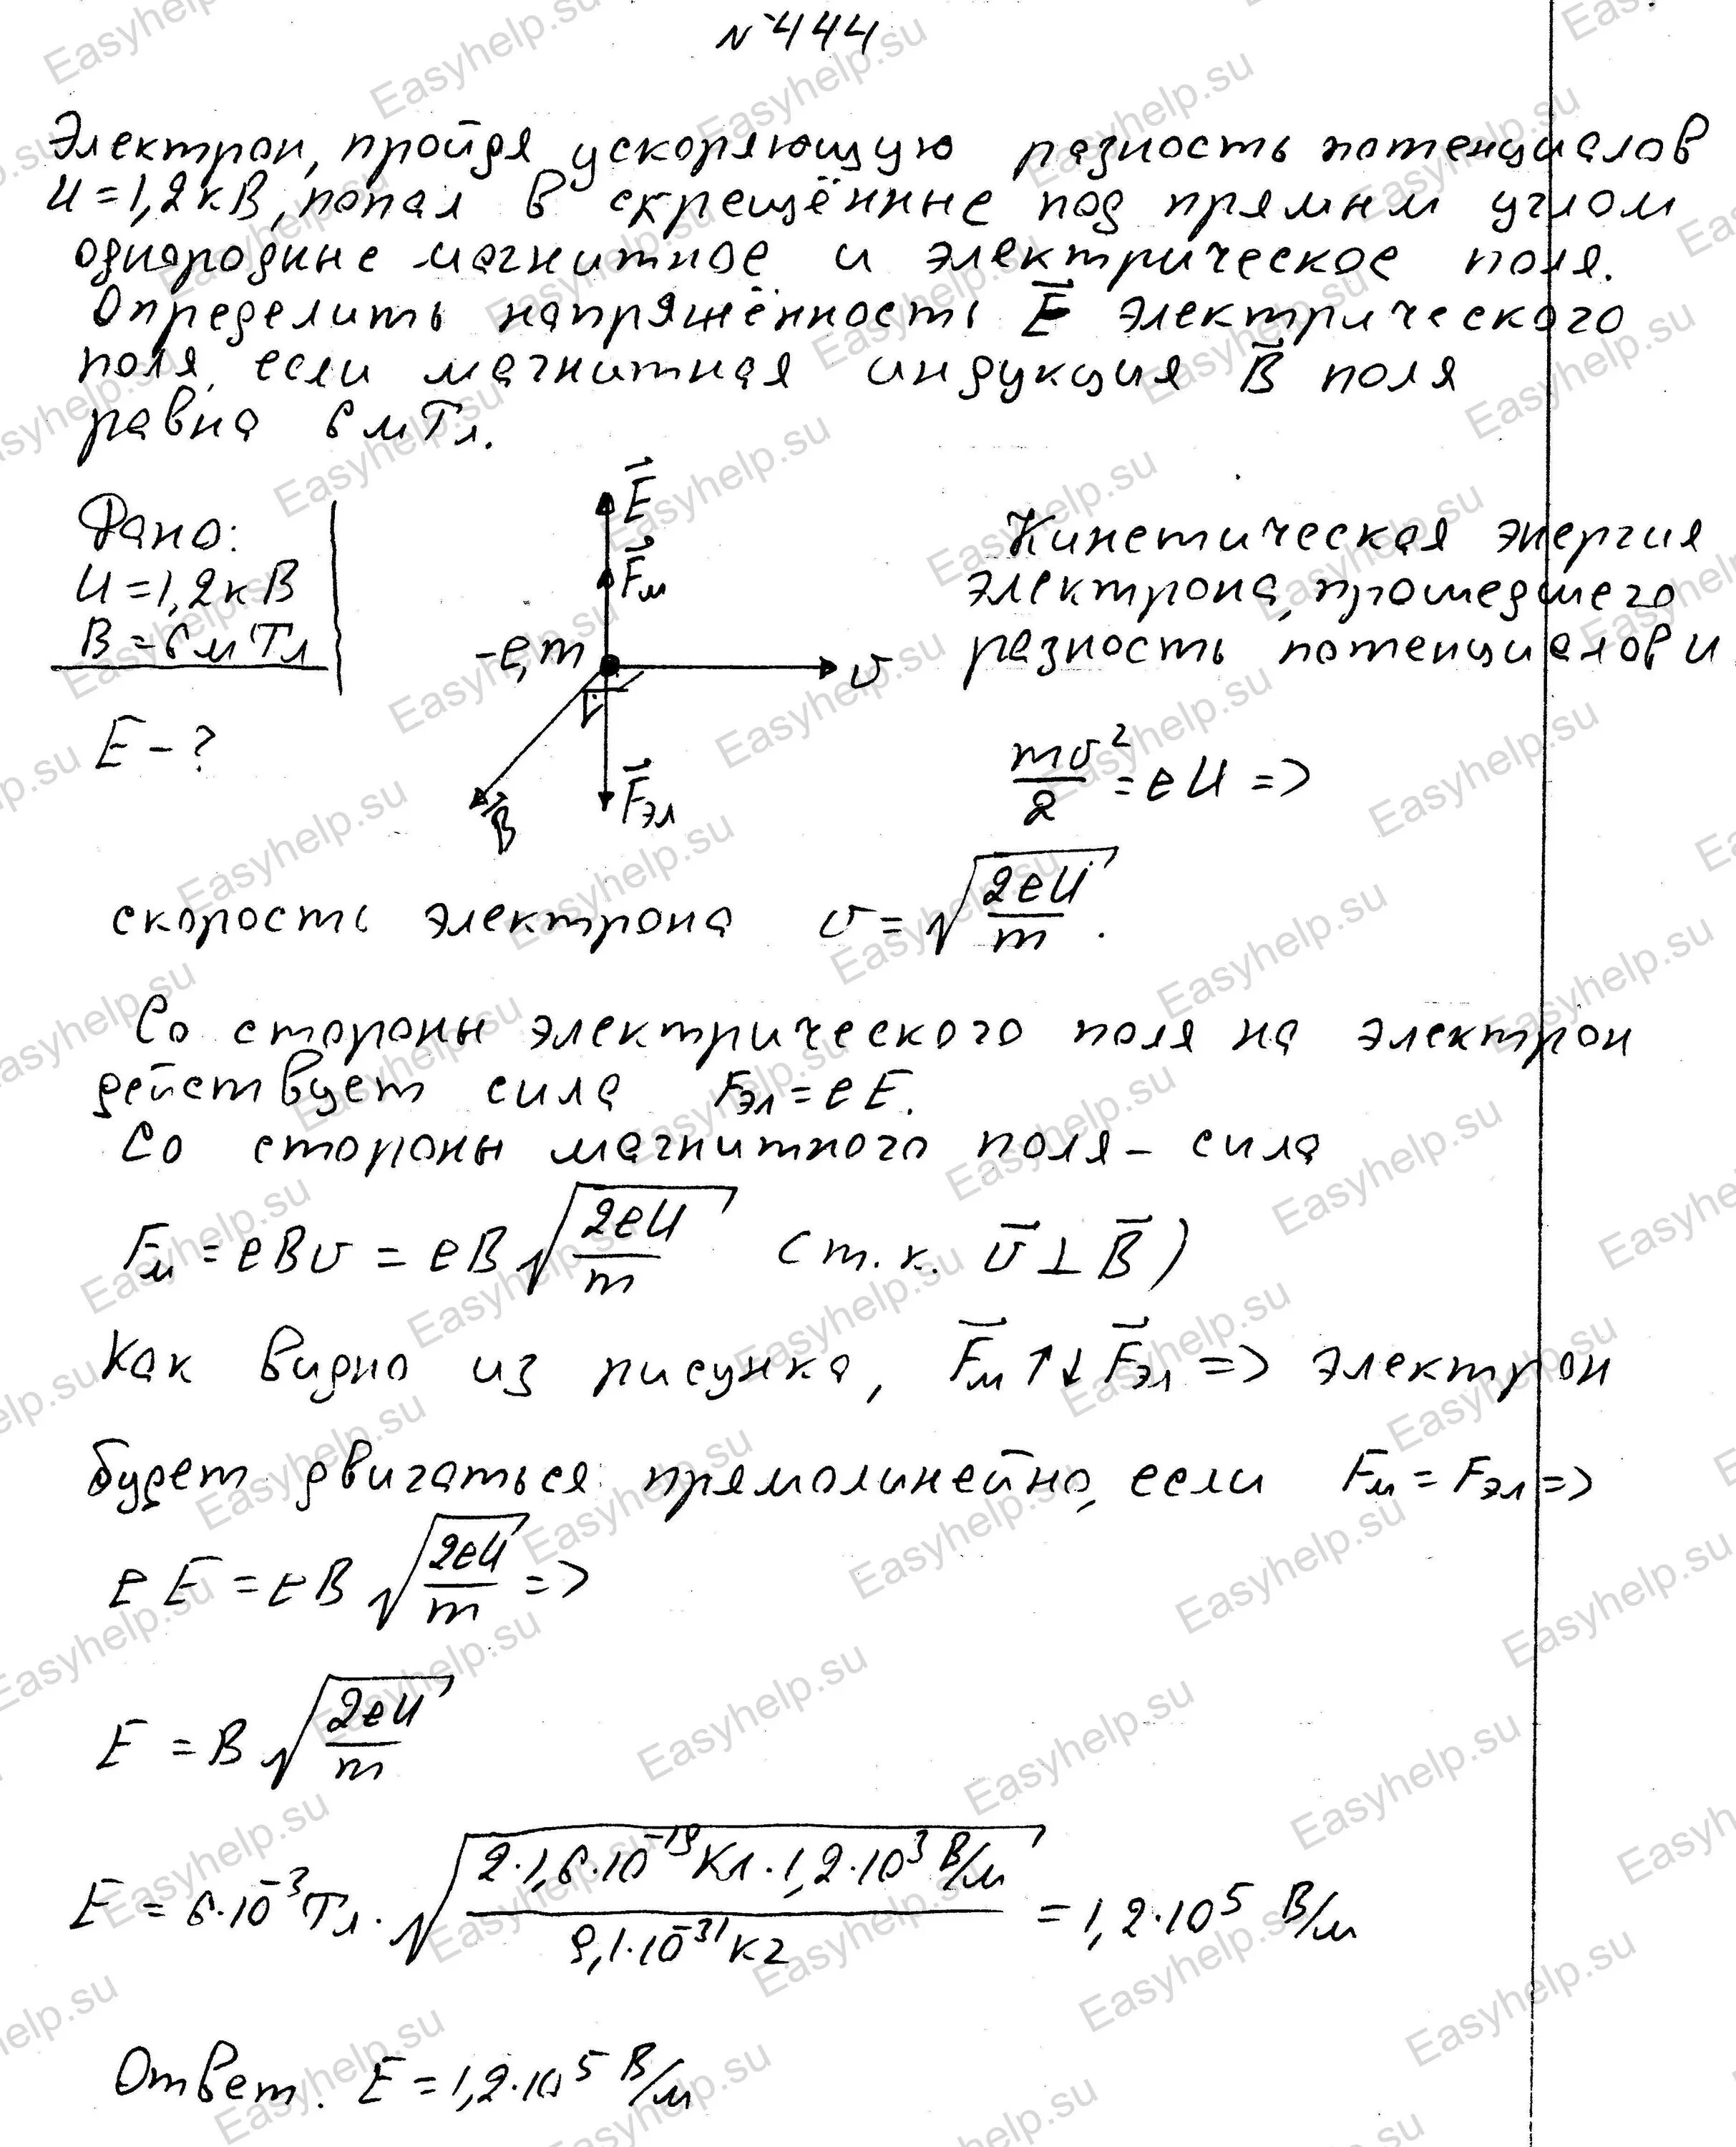 №444
Электрон, пройдя ускоряющую разность потенциалов
U=1,2кВ, попал в скрещённые под прямым углом
однородные магнитное и электрическое поля.
Определить напряжённость E⃗ электрического
поля, если магнитная индукция B⃗ поля
равна 6мТл.
Дано:
U=1,2кВ
B=6мТл
E-?
E⃗
F⃗м
-e,m
v⃗
B⃗
F⃗эл
Кинетическая энергия
электрона, прошедшего
разность потенциалов U
mv²/2=eU=>
скорость электрона v=√(2eU/m).
Со стороны электрического поля на электрон
действует сила Fэл=eE.
Со стороны магнитного поля- сила
Fм=eBv=eB√(2eU/m) (т.к. v⃗⊥B⃗)
Как видно из рисунка, F⃗м↑↓F⃗эл=> электрон
будет двигаться прямолинейно, если Fм=Fэл=>
eE=eB√(2eU/m)=>
E=B√(2eU/m)
E=6·10⁻³Тл·√(2·1,6·10⁻¹⁹Кл·1,2·10³В/м/9,1·10⁻³¹кг)=1,2·10⁵ В/м
Ответ. E=1,2·10⁵ В/м
Easyhelp.su